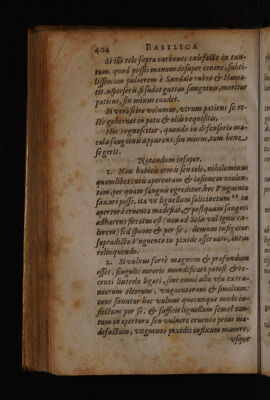 404 BASILICA
Si illi telo supra carbones calefacto in tan-
tum, quod possis manum desuper tenere, subti-
lissimum pulverem è Sandalo rubro & Hæma-
tit. asperseris, si sudat guttas sanguinis, moritur
patiens, sin minus evadet.
Si verò scire volumus, utrum patiens se re-
ctè gubernet in potu & aliis requisitis,
Hoc cognoscitur, quando in defensorio ma-
culæ sanguinis apparent, sin minus, tum bene
se gerit.
Notandum insuper.
1. Non habitu armis seu telo, nihilominus
quomlibet cutis aperturam & læsionem violen-
tam, per quam sanguis egreditur, hoc Unguento
sanari posse, ita ut lignellum salicinetum in
apertura cruenta madefiat, & postquam sanguis
adhærens siccatus est (non ad Solis vel ignis ca-
lorem) sed sponte & per se, demum infigatur
supradicto Unguento in pixide asservato, inibi
relinquendo.
2. Si vulnus fortè magnum & profundum
esset, singulis auroris mundificari potest & re-
centi linteolo ligari, sine omni alio usu extra-
neorum oleorum, unguentorum & similium:
tunc sanatur hoc vulnus quocunque modo in-
flictum per se. & sufficit lignellum semel tan-
tum in apertura seu vulnere cruento prius ma-
defactum, unguento pixidis infixum manere,
usque